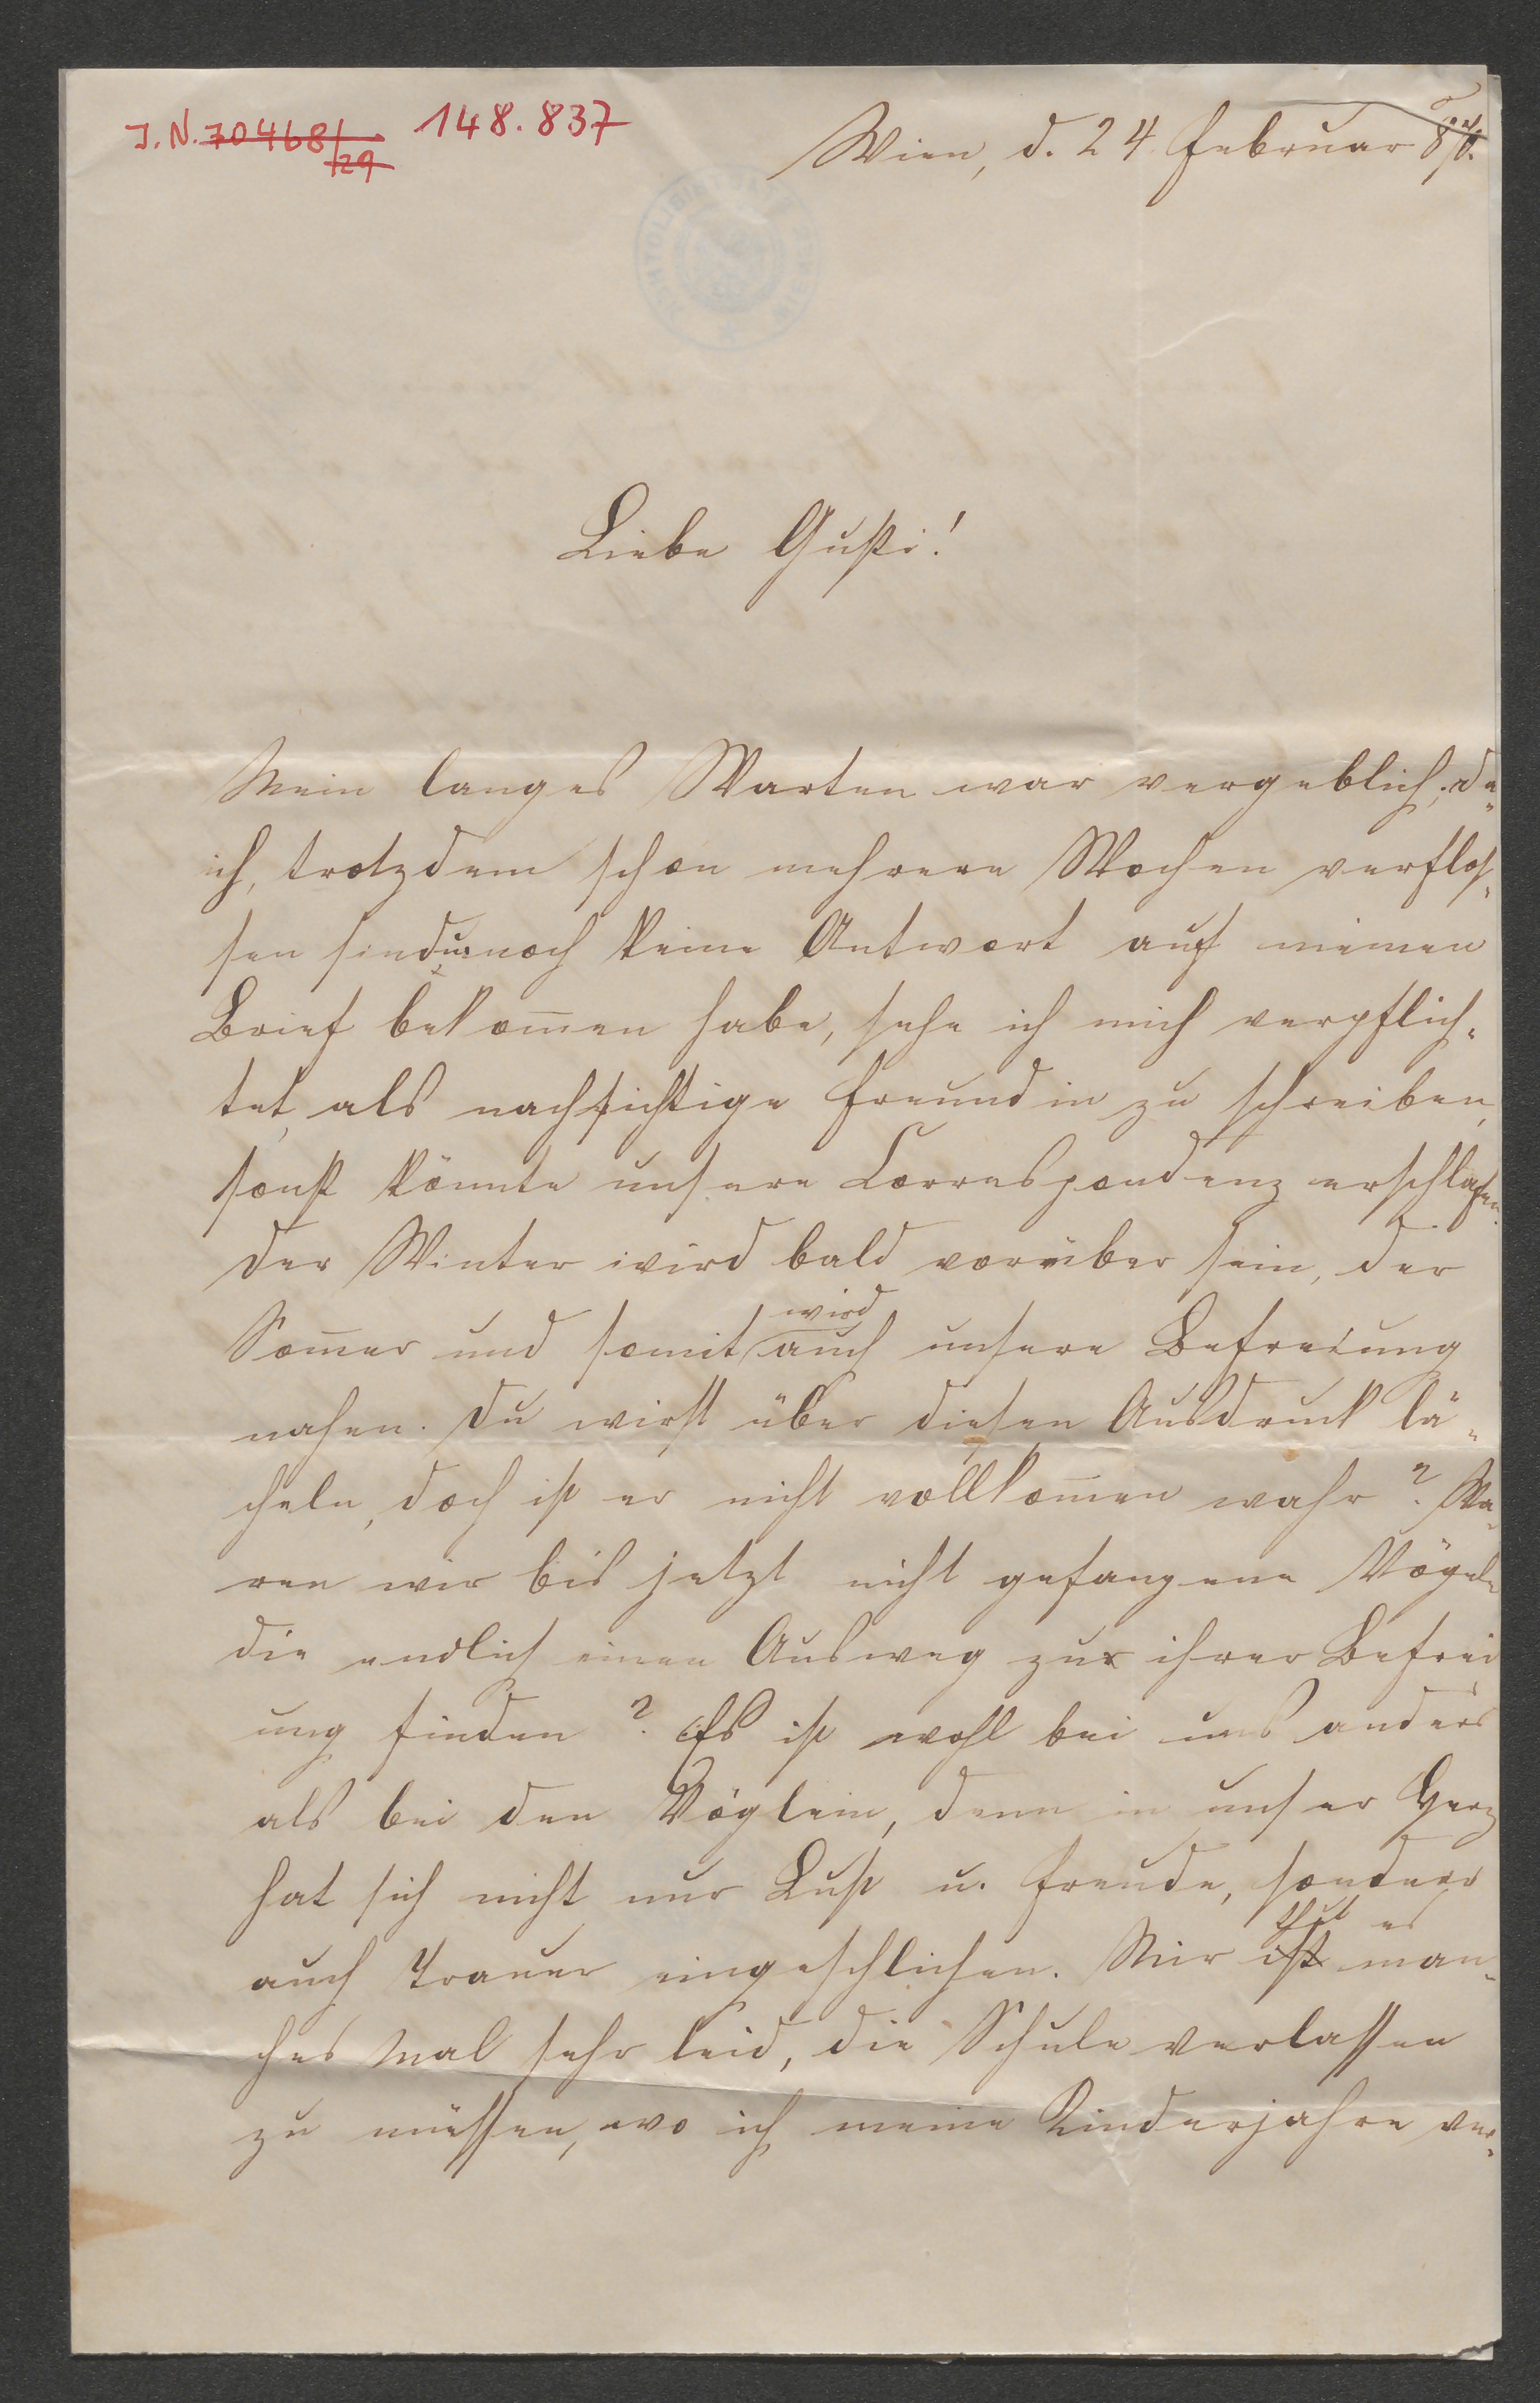 J. N. 70468/129 148.837
Wien, d. 24. Februar
Liebe Gusti!
Mein langes Warten war vergeblich; da
ich, trotzdem schon mehrere Wochen verflos-
sen sind u. noch keine Antwort auf meinen
Brief bekom̄en habe, sehe ich mich verpflich-
tet, als nachsichtige Freundin zu schreiben,
sonst könnte unsere Correspondenz erschlafen.
Der Winter wird bald vorüber sein, der
Som̄er und somit wird auch unsere Befreiung
nahen. Du wirst über diesen Ausdruck lä-
cheln, doch ist er nicht vollkom̄en wahr? Wa-
ren wir bis jetzt nicht gefangene Vögel
die endlich einen Ausweg zur ihrer Befrei
ung finden? Es ist wohl bei uns anders
als bei den Vöglein, denn in unser Herz
hat sich nicht nur Lust u. Freude, sondern
auch Trauer eingeschlichen. Mir ist thut es man-
ches Mal sehr leid, die Schule verlassen
zu müssen, wo ich meine Kinderjahre ver-